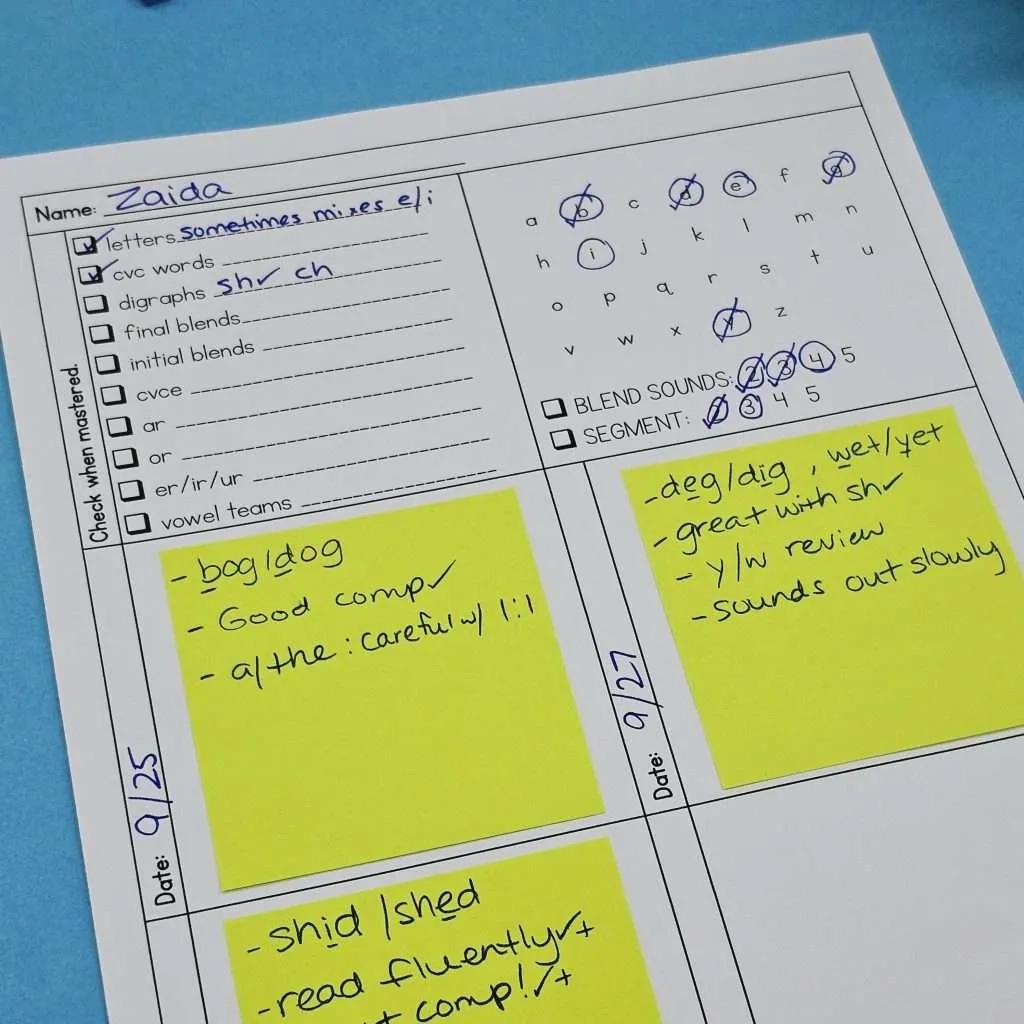 Name: Zaida
Check when mastered.
letters sometimes mixes e/i
cvc words
digraphs sh✓ ch
final blends
initial blends
cvce
ar
or
er/ir/ur
vowel teams
a b c d e f g
h i j k l m n
o p q r s t u
v w x y z
BLEND SOUNDS: 2 3 4 5
SEGMENT: 2 3 4 5
Date: 9/25
- bog/dog
- Good comp✓
- a/the : careful w/ 1:1
Date: 9/27
- deg/dig, wet/yet
- great with sh✓
- y/w review
- sounds out slowly
- shid /shed
- read fluently✓+
comp!✓+